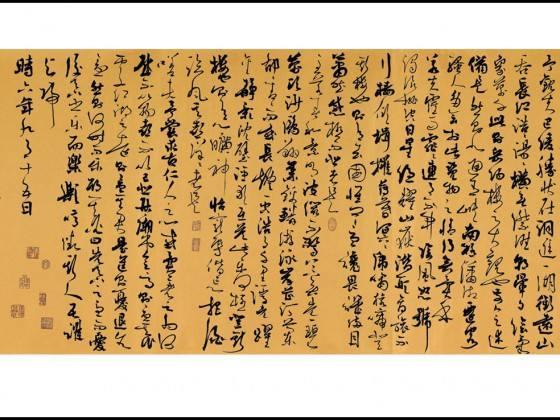 予觀夫巴陵勝狀在洞庭一湖銜遠山
吞長江浩浩湯湯橫無際涯朝暉夕陰氣
象萬千此則岳陽樓之大觀也前人之述
備矣然則北通巫峽南極瀟湘遷客
騷人多會於此覽物之情得無異乎
若夫霪雨霏霏連月不開陰風怒號
濁浪排空日星隱耀山岳潛形商旅不
行檣傾楫摧薄暮冥冥虎嘯猿啼登
斯樓也則有去國懷鄉憂讒畏譏滿目
蕭然感極而悲者矣
至若春和景明波瀾不驚上下天光一碧
萬頃沙鷗翔集錦鱗游泳岸芷汀蘭
郁郁青青而或長煙一空皓月千里浮光躍
金靜影沉璧漁歌互答此樂何極登斯
樓也則有心曠神怡寵辱偕忘把酒
臨風其喜洋洋者矣
嗟夫予嘗求古仁人之心或異二者之為何
哉不以物喜不以己悲居廟堂之高則憂其民
處江湖之遠則憂其君是進亦憂退亦
憂然則何時而樂耶其必曰先天下之憂而憂
後天下之樂而樂歟噫微斯人吾誰
與歸
時六年九月十五日